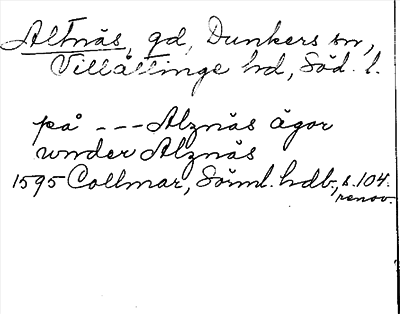 Altnäs, gd, Dunkers sn,
Villåttinge hd, Söd. l.
på --- Alznäs ägor
under Alznäs
1595 Collmar, Sörml. hdb., s. 104.
renov.